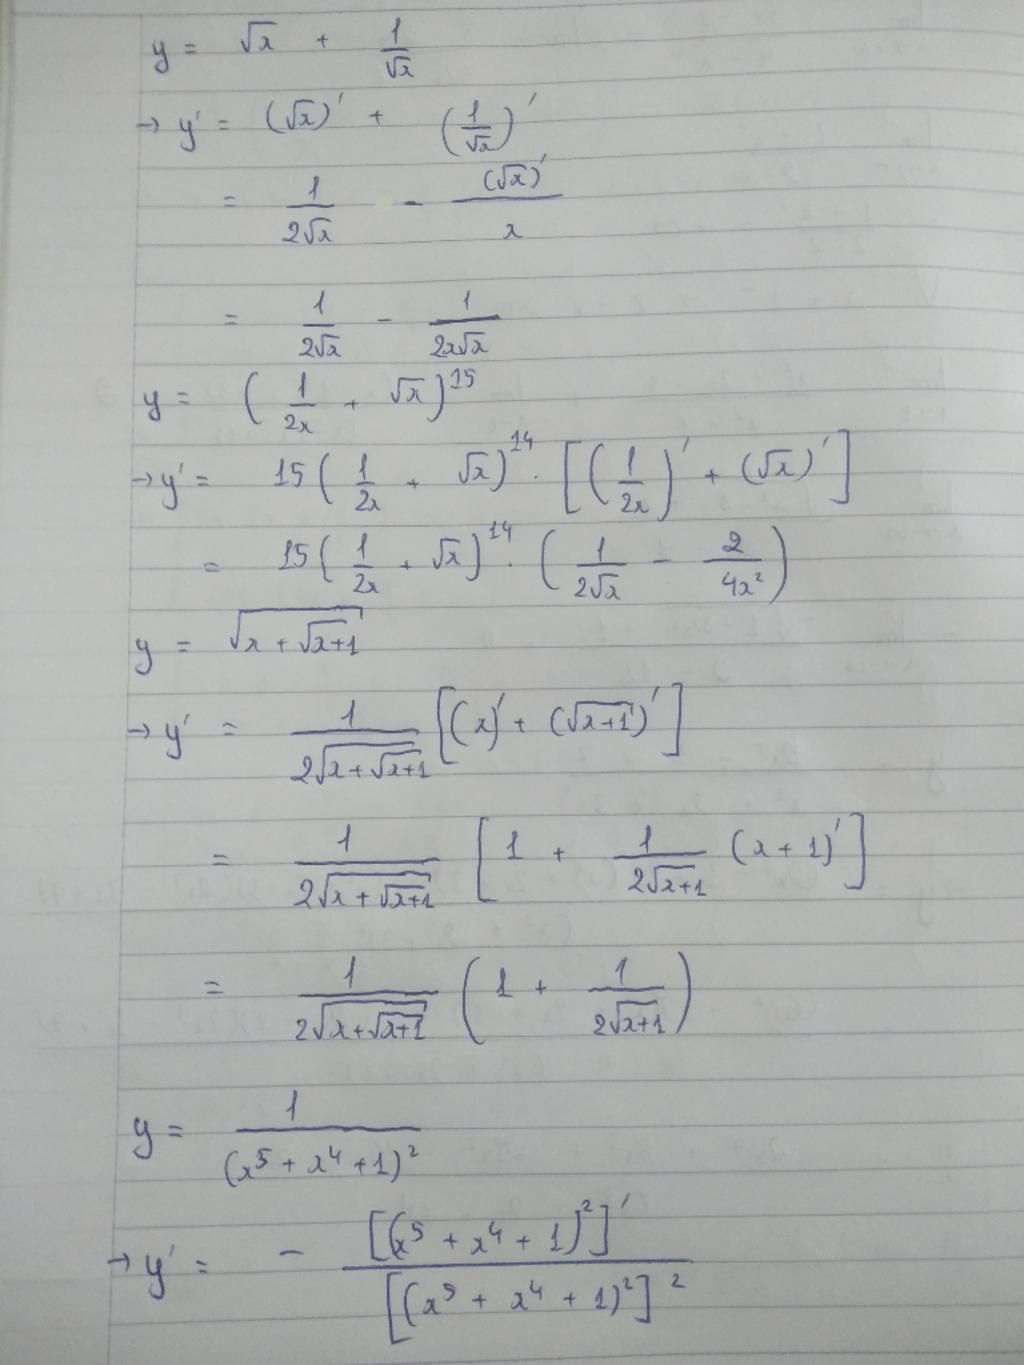 y = √x + 1/√x
→ y' = (√x)' + (1/√x)'
= 1/(2√x) - (√x)'/x
= 1/(2√x) - 1/(2x√x)
y = (1/(2x) + √x)^15
→ y' = 15(1/(2x) + √x)^14 . [(1/(2x))' + (√x)']
= 15(1/(2x) + √x)^14 . (1/(2√x) - 2/(4x²))
y = √(x + √(x+1))
→ y' = 1/(2√(x + √(x+1))) [(x)' + (√(x+1))']
= 1/(2√(x + √(x+1))) [1 + 1/(2√(x+1)) (x + 1)']
= 1/(2√(x+√(x+1))) (1 + 1/(2√(x+1)))
y = 1/(x⁵ + x⁴ + 1)²
→ y' = - [(x⁵ + x⁴ + 1)²]' / [(x⁵ + x⁴ + 1)²]²